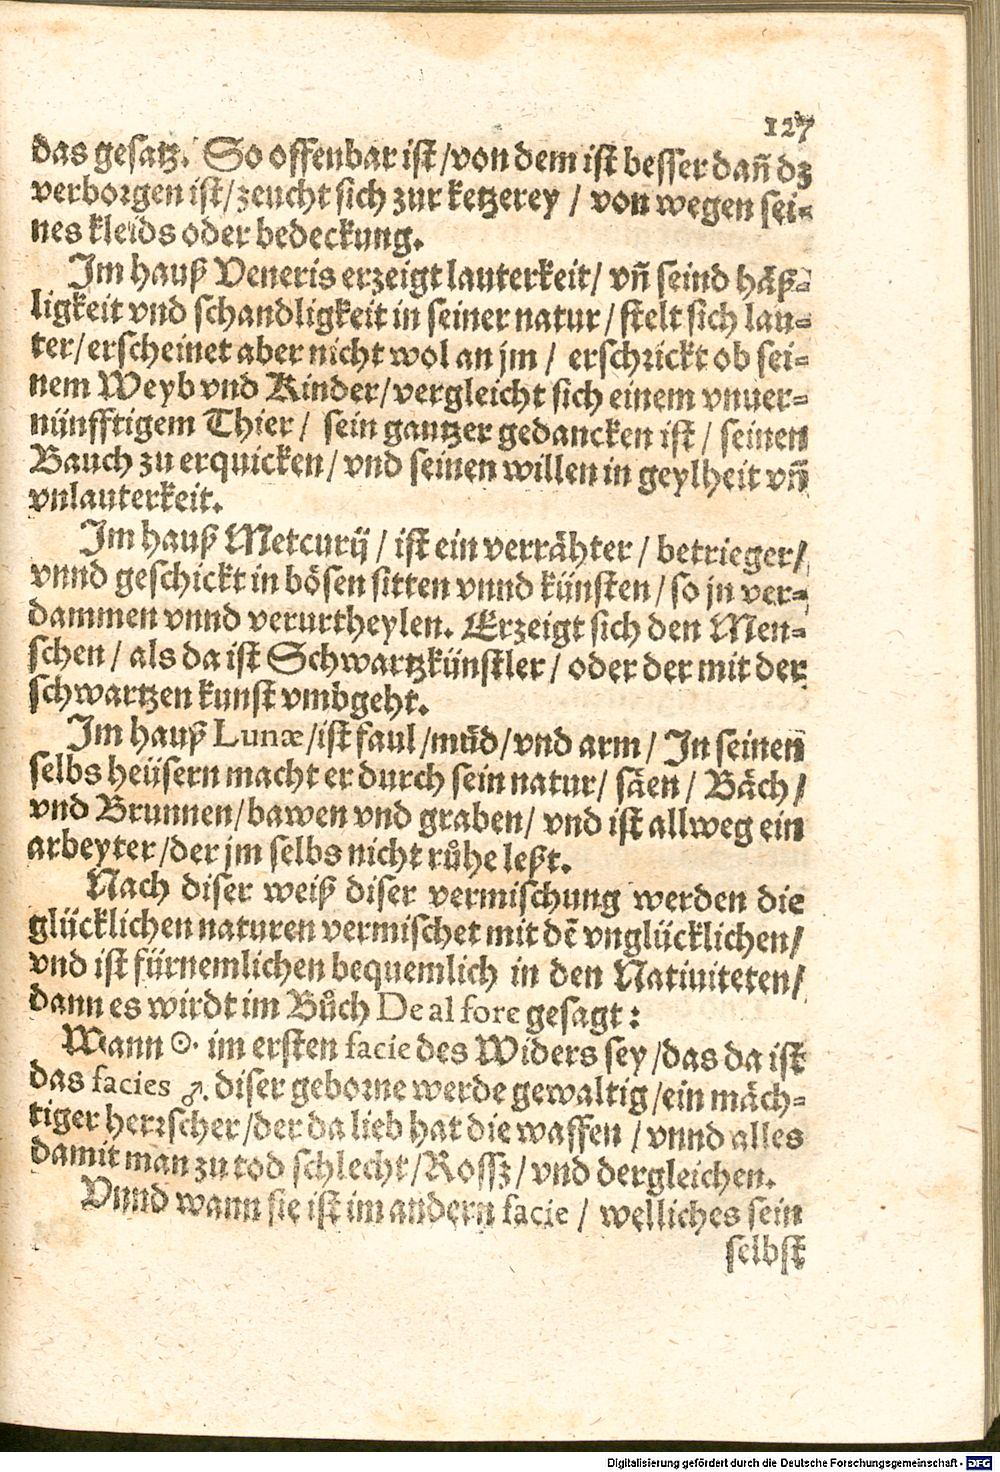 127
das gesatz. So offenbar ist/von dem ist besser dañ dz
verborgen ist/zeucht sich zur ketzerey / von wegen sei-
nes kleids oder bedeckung.
Im hauß Veneris erzeigt lauterkeit/ vñ seind häß-
ligkeit vnd schandligkeit in seiner natur/stelt sich lau-
ter/erscheinet aber nicht wol an jm / erschrickt ob sei-
nem Weyb vnd Kinder/vergleicht sich einem vnuer-
nünfftigem Thier / sein gantzer gedancken ist / seinen
Bauch zu erquicken/vnd seinen willen in geylheit vñ
vnlauterkeit.
Im hauß Metcurij / ist ein verrähter / betrieger/
vnnd geschickt in bösen sitten vnnd künsten/so jn ver-
dammen vnnd verurtheylen. Erzeigt sich den Men-
schen / als da ist Schwartzkünstler/ oder der mit der
schwartzen kunst vmbgeht.
Im hauß Lunæ/ist faul/mūd/vnd arm/ In seinen
selbs heüsern macht er durch sein natur/ säen / Bäch/
vnd Brunnen/bawen vnd graben/ vnd ist allweg ein
arbeyter/der jm selbs nicht růhe leßt.
Nach diser weiß diser vermischung werden die
glücklichen naturen vermischet mit dē vnglücklichen/
vnd ist fürnemlichen bequemlich in den Natiuiteten/
dann es wirdt im Bůch De al fore gesagt:
Wann ☉. im ersten facie des Widers sey/das da ist
das facies ♂. diser geborne werde gewaltig/ein mäch-
tiger herrscher/der da lieb hat die waffen / vnnd alles
damit man zu tod schlecht/Rossz/vnd dergleichen.
Vnnd wann sie ist im andern facie / welliches sein
selbst
Digitalisierung gefördert durch die Deutsche Forschungsgemeinschaft - DFG